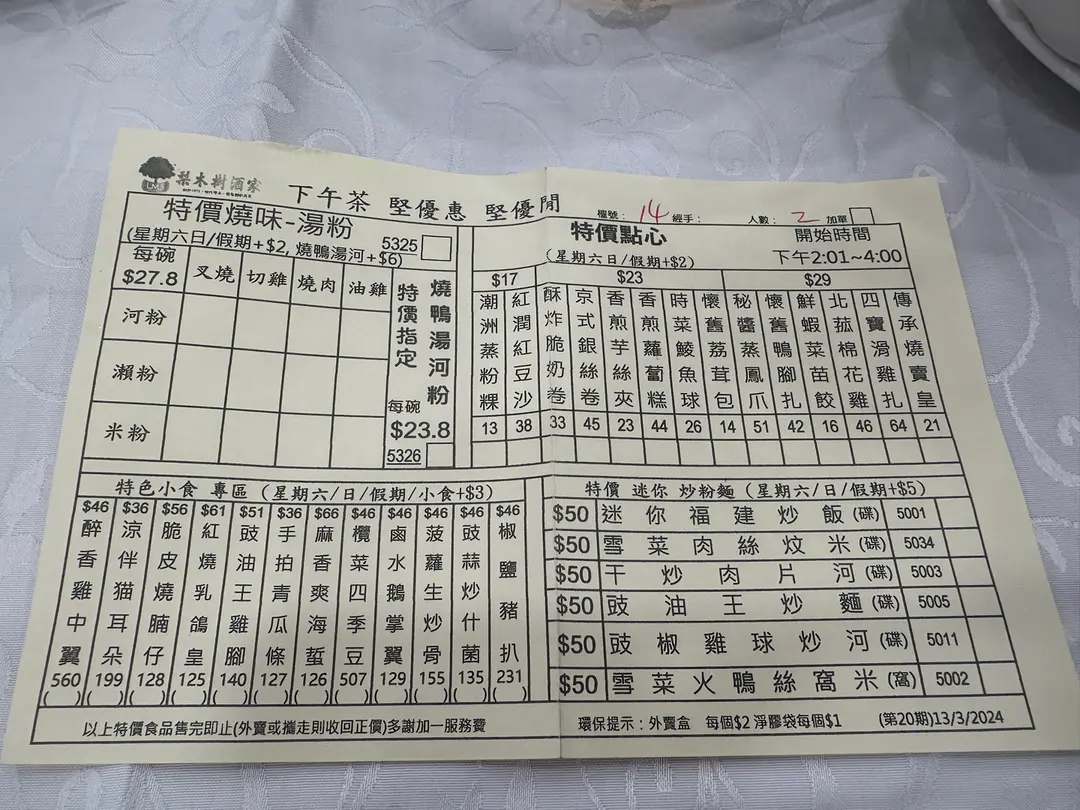 梨木樹酒家
下午茶 堅優惠 堅優閒
檯號： 14 經手： 人數： 2 加單
特價燒味-湯粉
(星期六日/假期+$2, 燒鴨湯河+$6)
5325
每碗
$27.8
叉燒 切雞 燒肉 油雞
河粉
瀨粉
米粉
特價指定
燒鴨湯河粉
每碗
$23.8
5326
特價點心
(星期六日/假期+$2)
開始時間
下午2:01~4:00
$17 $23 $29
潮洲蒸粉粿 13
紅潤紅豆沙 38
酥炸脆奶卷 33
京式銀絲卷 45
香煎芋絲夾 23
香煎蘿蔔糕 44
時菜鯪魚球 26
懷舊荔茸包 14
秘醬蒸鳳爪 51
懷舊鴨腳扎 42
鮮蝦菜苗餃 16
北菰棉花雞 46
四寶滑雞扎 64
傳承燒賣皇 21
特色小食 專區 (星期六/日/假期/小食+$3)
$46 醉香雞中翼 560 ( )
$36 涼伴猫耳朵 199 ( )
$56 脆皮燒腩仔 128 ( )
$61 紅燒乳鴿皇 125 ( )
$51 豉油王雞腳 140 ( )
$36 手拍青瓜條 127 ( )
$66 麻香爽海蜇 126 ( )
$46 欖菜四季豆 507 ( )
$46 鹵水鵝掌翼 129 ( )
$46 菠蘿生炒骨 155 ( )
$46 豉蒜炒什菌 135 ( )
$46 椒鹽豬扒 231 ( )
特價 迷你 炒粉麵 (星期六/日/假期+$5)
$50 迷你福建炒飯(碟) 5001
$50 雪菜肉絲炆米(碟) 5034
$50 干炒肉片河(碟) 5003
$50 豉油王炒麵(碟) 5005
$50 豉椒雞球炒河(碟) 5011
$50 雪菜火鴨絲窩米(窩) 5002
以上特價食品售完即止(外賣或攜走則收回正價)多謝加一服務費
環保提示：外賣盒 每個$2 淨膠袋每個$1 (第20期)13/3/2024